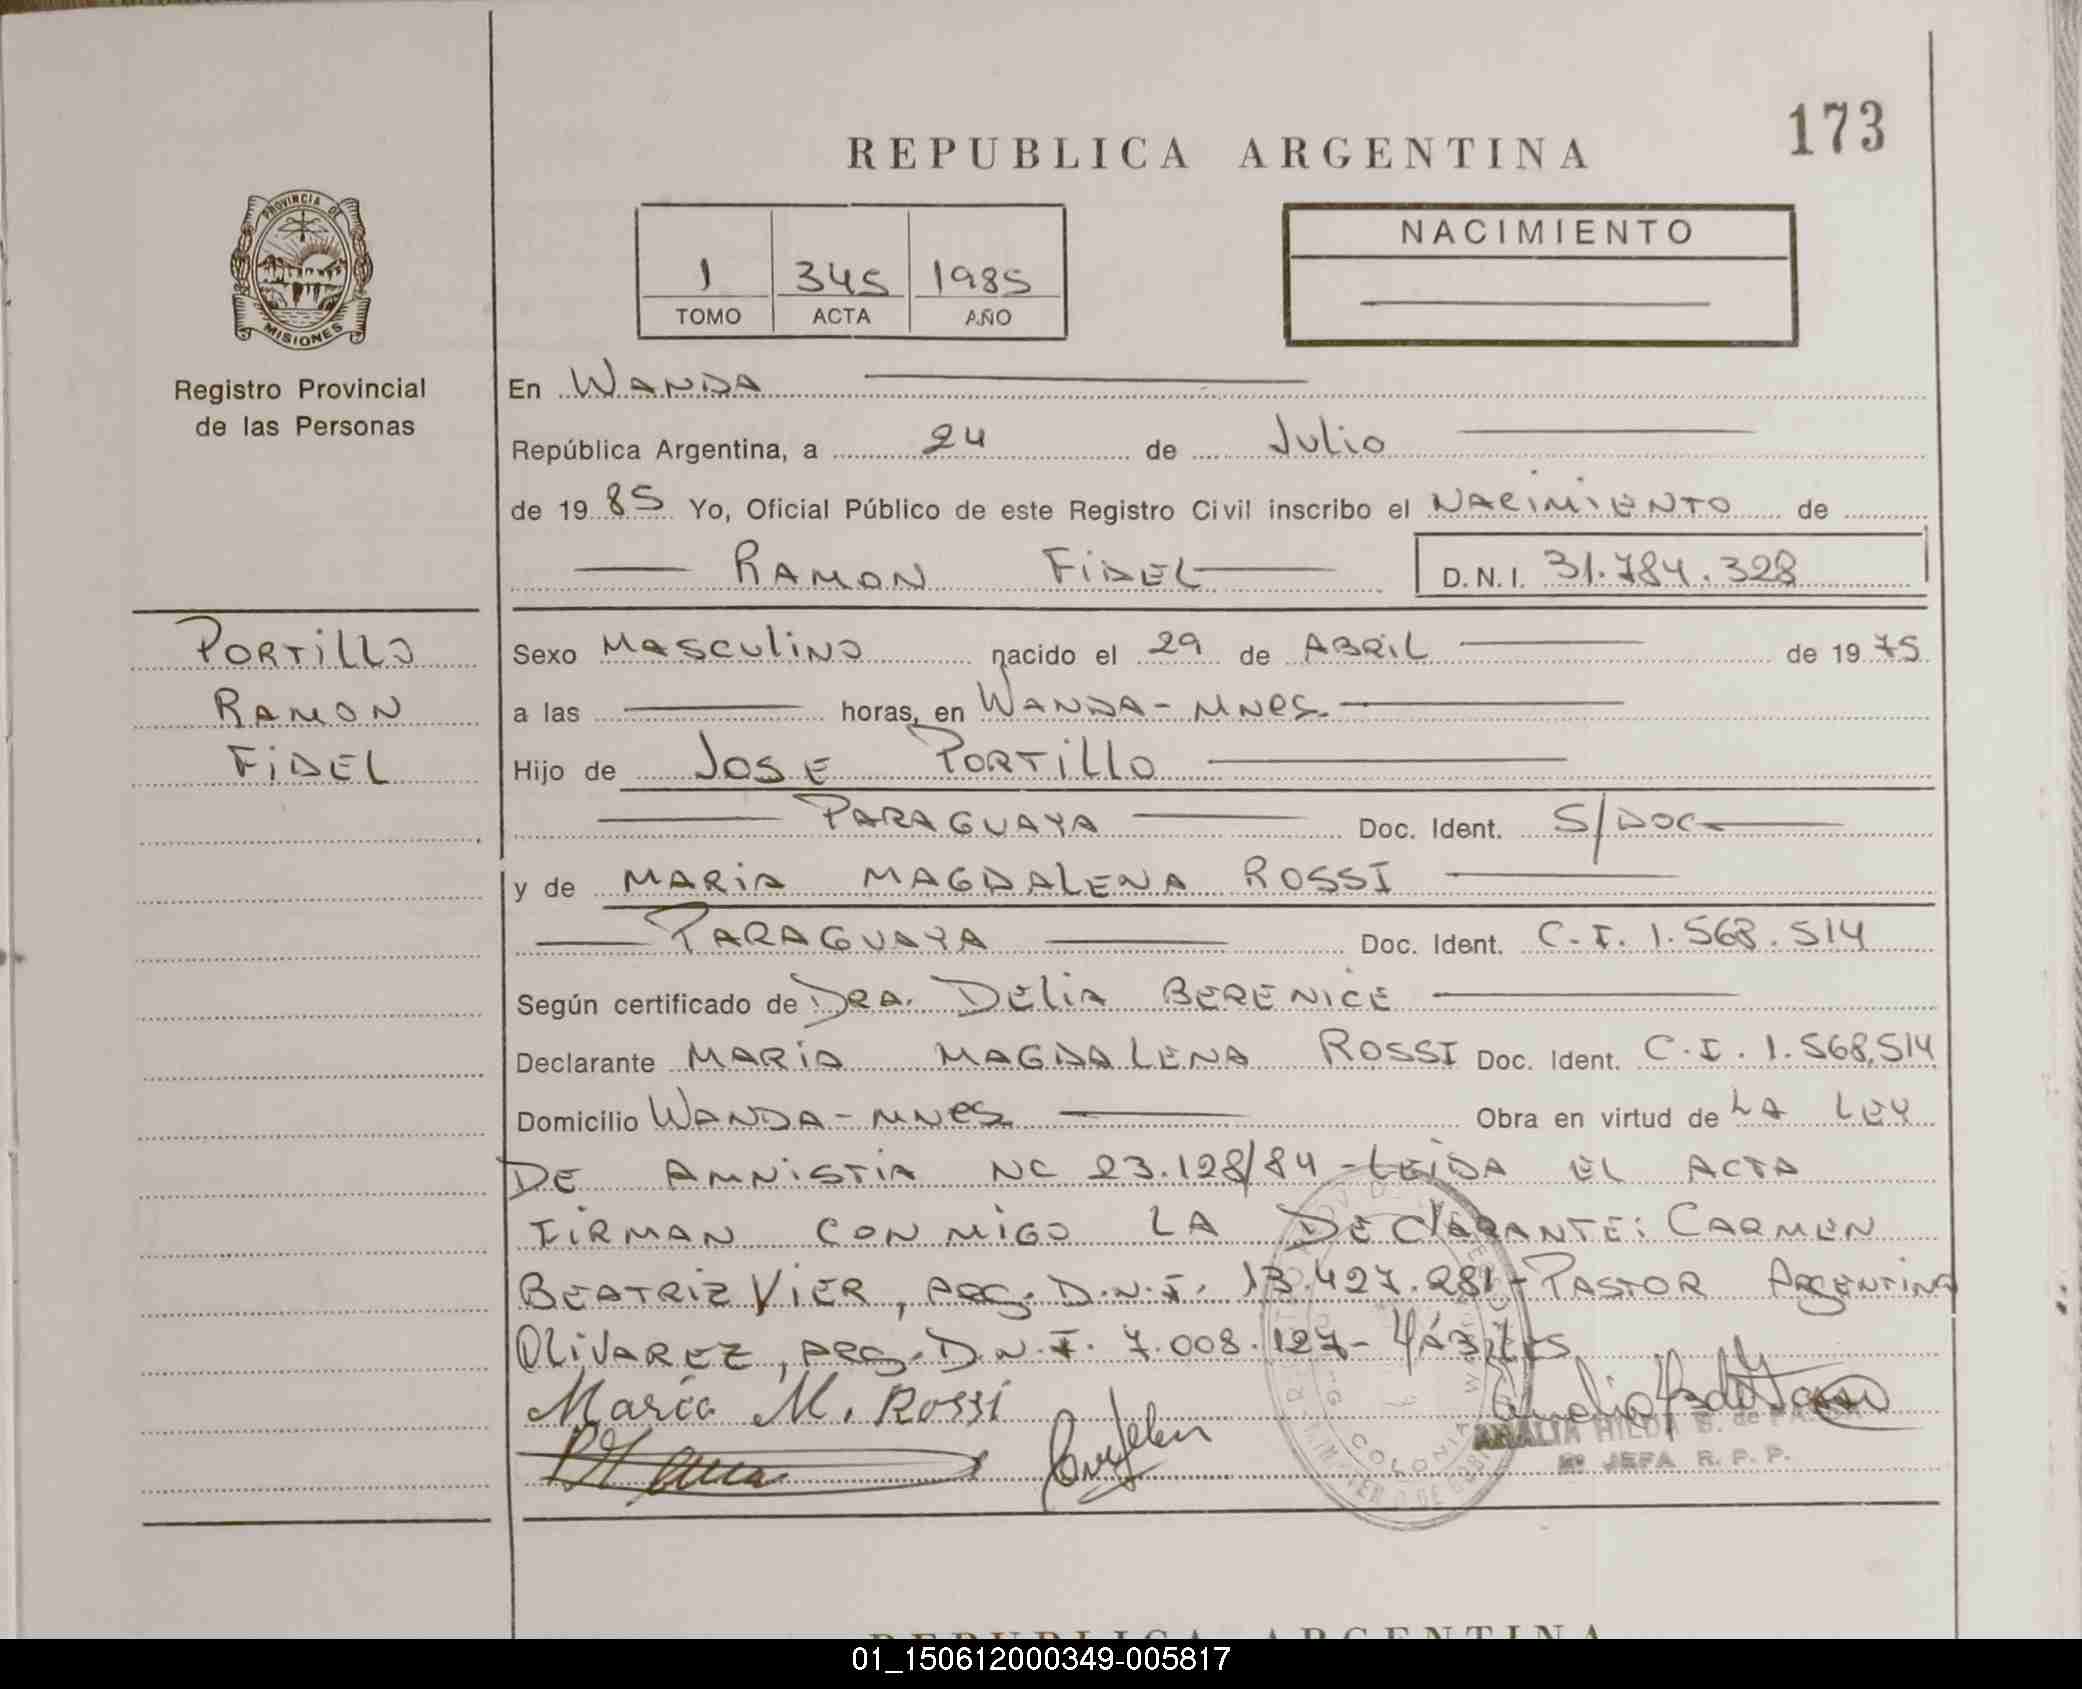 173
REPUBLICA ARGENTINA
PROVINCIA DE
MISIONES
Registro Provincial
de las Personas
1 345 1985
TOMO ACTA AÑO
NACIMIENTO
En WANDA
República Argentina, a 24 de Julio
de 1985 Yo, Oficial Público de este Registro Civil inscribo el NACIMIENTO de
RAMON FIDEL D.N.I. 31.784.328
PORTILLO
RAMON
FIDEL
Sexo MASCULINO nacido el 29 de ABRIL de 1975
a las horas, en WANDA - MNES.
Hijo de JOSE PORTILLO
PARAGUAYA Doc. Ident. S/DOC
y de MARIA MAGDALENA ROSSI
PARAGUAYA Doc. Ident. C.I. 1.568.514
Según certificado de DRA. DELIA BERENICE
Declarante MARIA MAGDALENA ROSSI Doc. Ident. C.I. 1.568.514
Domicilio WANDA - MNES. Obra en virtud de LA LEY
DE AMNISTIA NC 23.128/84 - LEIDA EL ACTA
FIRMAN CONMIGO LA DECLARANTE: CARMEN
BEATRIZ VIER, ARG. D.N.I. 13.427.281 - PASTOR ARGENTINO
OLIVAREZ, ARG. D.N.I. 7.008.127 - Hábiles
María M. Rossi
AMALIA HILDA B. de
JEFA R. P. P.
COLONIA W
REPUBLICA ARGENTINA
01_150612000349-005817